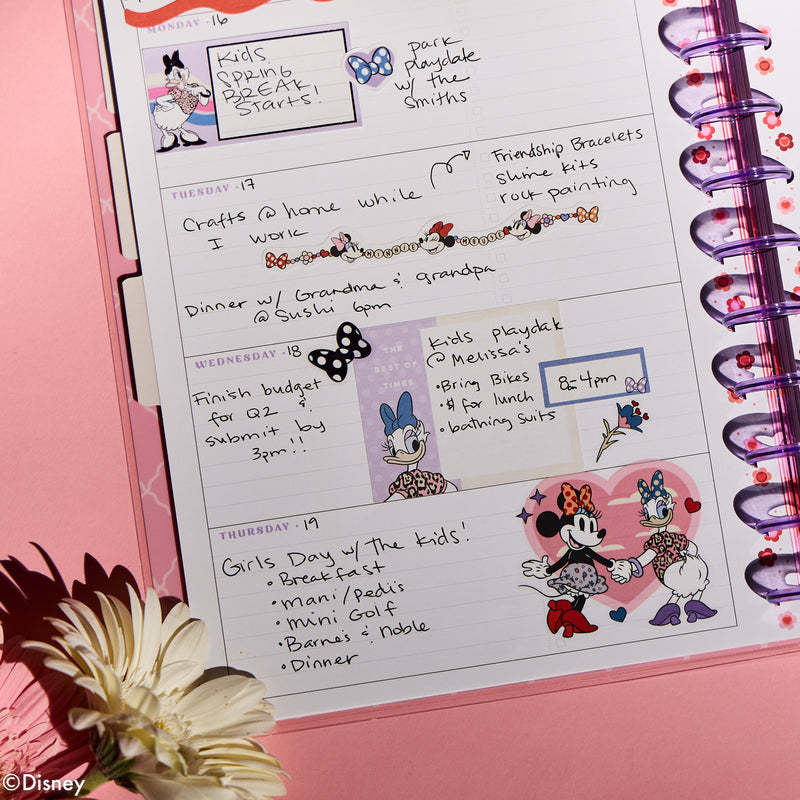 MONDAY · 16
Kids
SPRING
BREAK
Starts!
park
playdate
w/ the
Smiths
TUESDAY · 17
Crafts @ home while
I work
Friendship Bracelets
slime kits
rock painting
MINNIE MOUSE
Dinner w/ Grandma & grandpa
@ Sushi 6pm
WEDNESDAY · 18
Finish budget
for Q2 &
submit by
3pm!!
THE
BEST OF
TIMES
Kids playdate
@ Melissa's
• Bring Bikes
• $ for lunch
• bathing suits
8-4pm
THURSDAY · 19
Girls Day w/ the kids!
• Breakfast
• mani/pedis
• mini Golf
• Barnes & Noble
• Dinner
©Disney